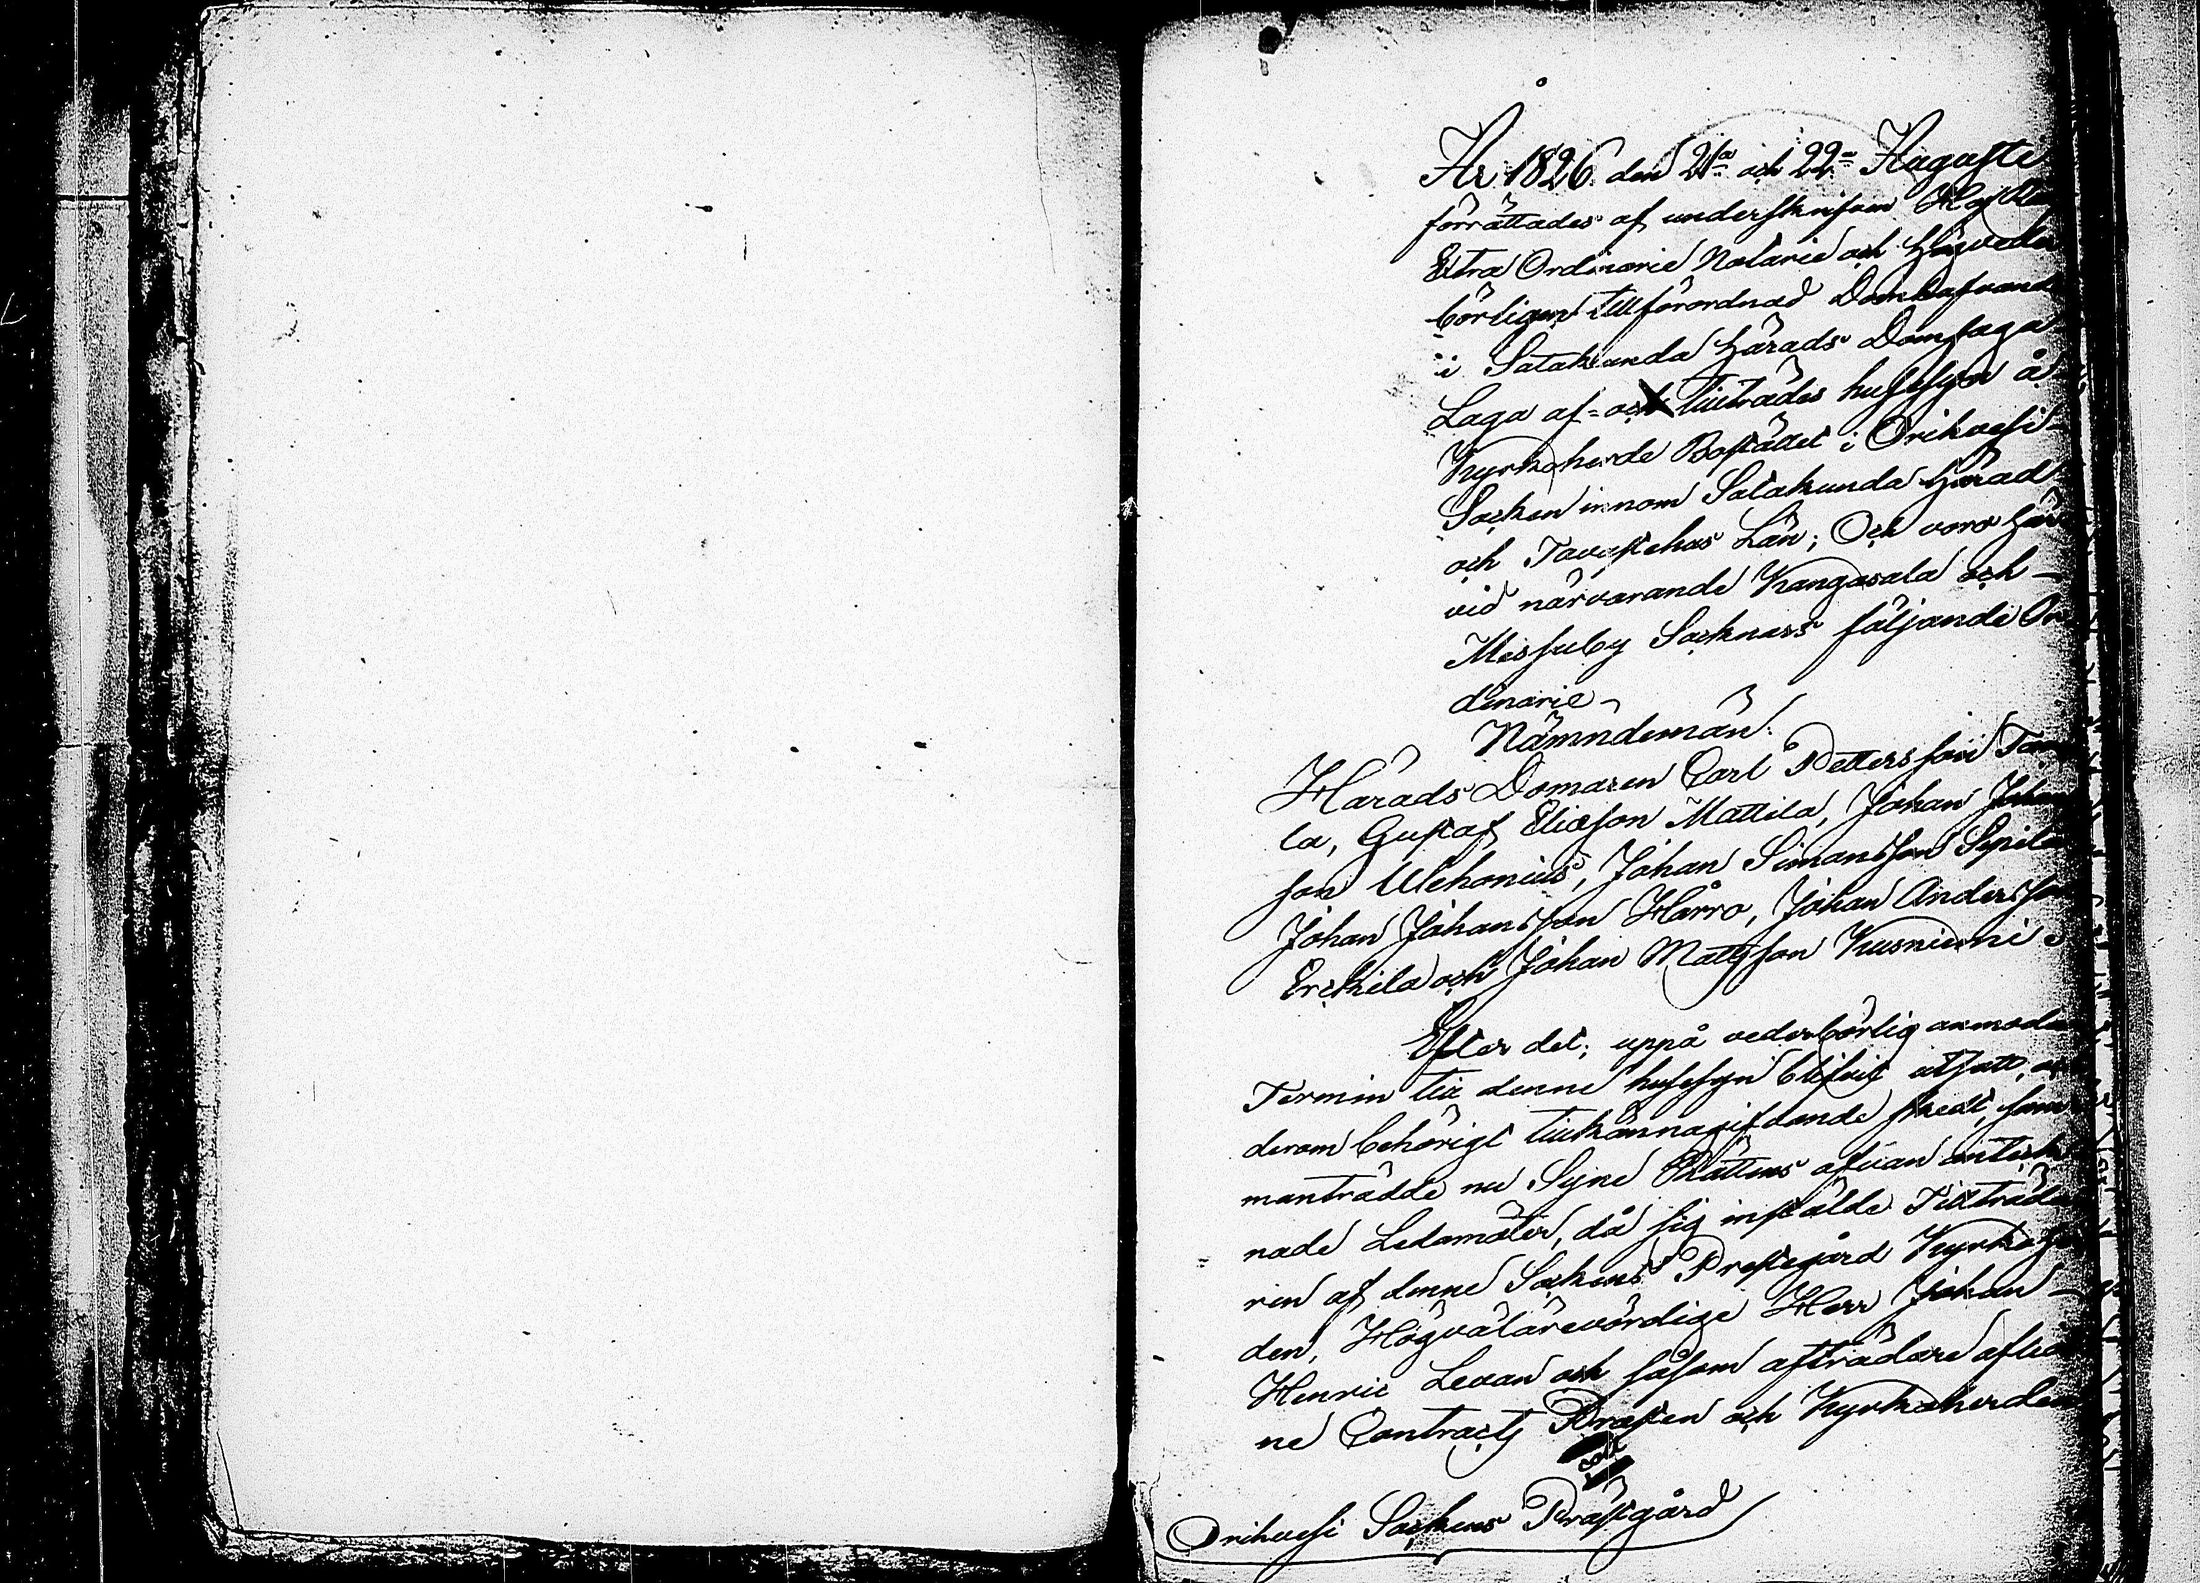 År 1826 den 21a och 22a Augusti
förrättades af underskrifven Hof Rätts
Extra Ordinarie Notarie och Högveder
börligen tillförordnad Domhafvande
i Satakunda Härads Domsaga
Laga af- och tillträdes husesyn å
Kyrkoherde Bostället i Orihvesi
Socken innom Satakunda Härad
och Tavastehus Län; Och voro här
vid närvarande Kangasala och
Messuby Socknars följande Or
dinarie
Nämndemän:
Härads Domaren Carl Pettersson
la, Gustaf Eliasson Mattila, Johan Johans
son Uleonius, Johan Simonsson Sipila
Johan Johansson Harro, Johan Andersson
Erckila och Johan Mattsson Kusniemi
Efter det, uppå vederbörlig anmodan
Termin till denne husesyn blifvit utsatt, och
derom behörigt tillkännagifvande skedt, sam
manträdde nu Syne Rättens ofvan anteck
nade Ledamöter, då sig inställde Tillträda
ren af denne Sockens Prestegård Kyrkoher
den, Högvälärevördige Herr Johan
Henric Levan och såsom afträdare aflid
ne Contracts Prosten och Kyrkoherden
Orihvesi Sockens Prästgård